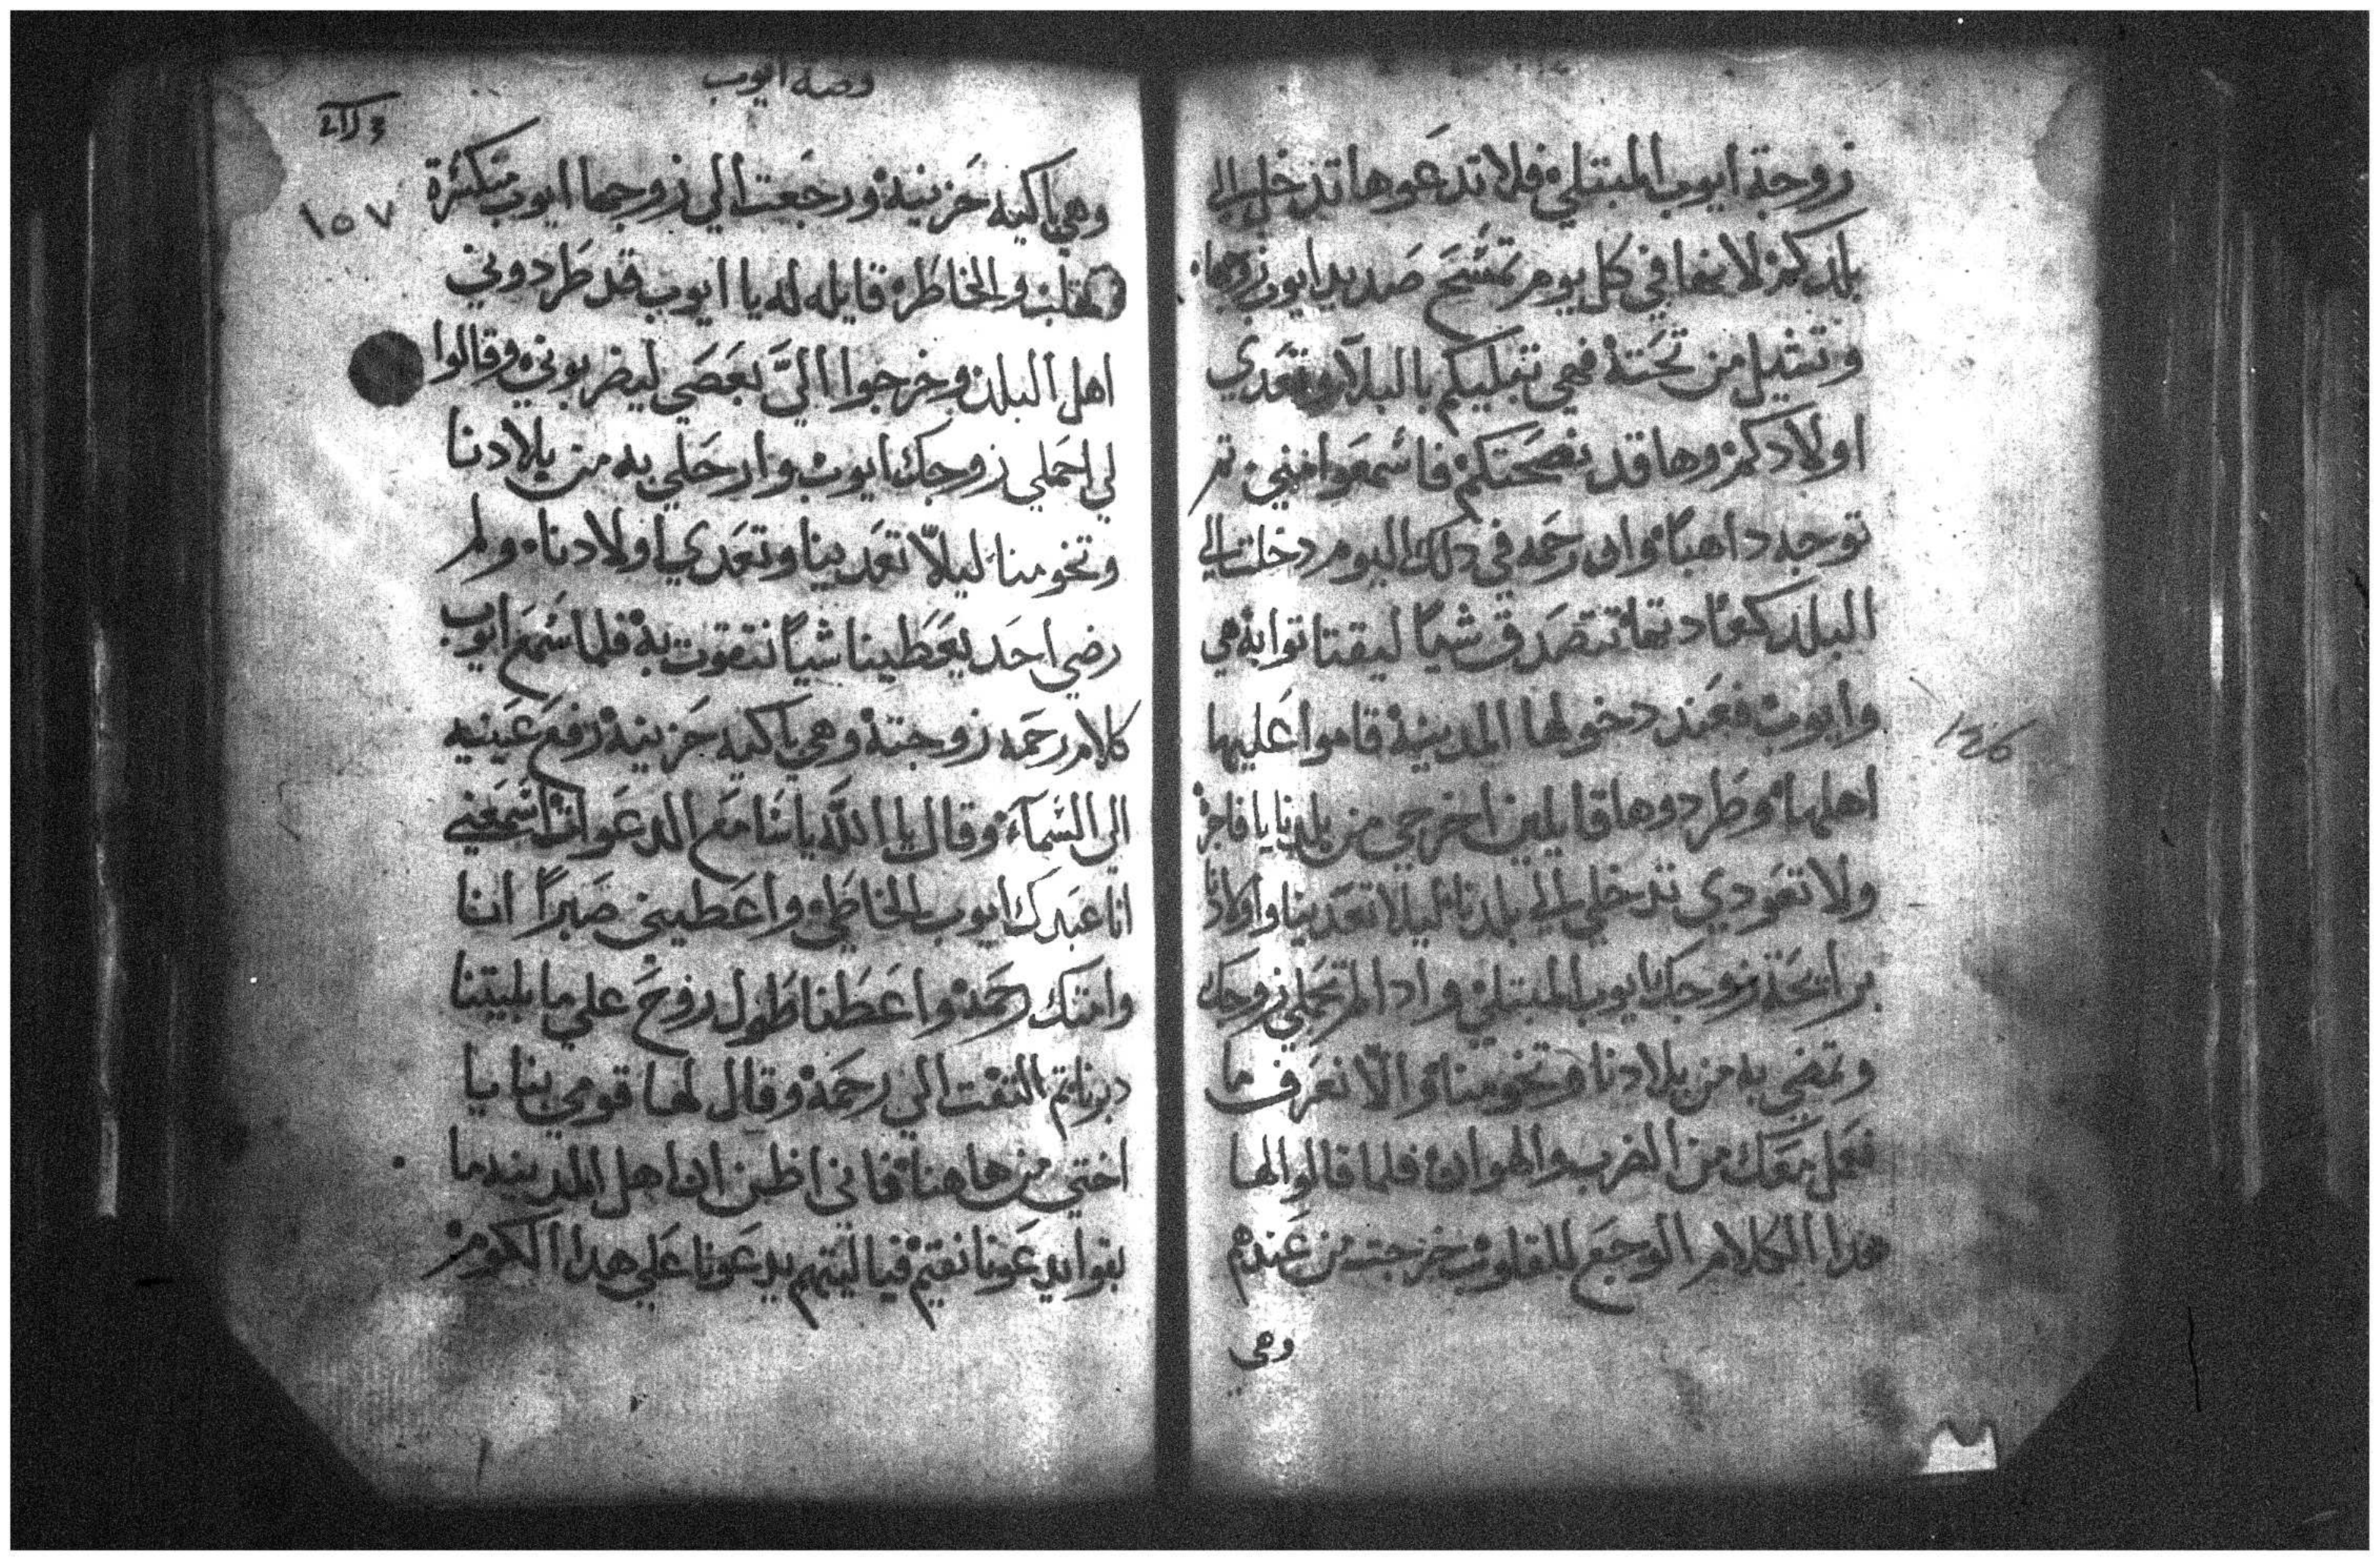 زوجة ايوب المبتلي فلا تدعوها تدخل الي
بلدكم لانها في كل يوم تمسح صديد ايوب زوجها
وتشيل من تحته فهي تبليكم بالبلاء وتعدي
اولادكم وها قد نصحتكم فاسمعوا مني تم
توجه داهبا وان رحمه في دلك اليوم دخلت الي
البلد كعادتها تتصدق شيا ليقتاتوا به هي
وايوب فعند دخولها المدينة قاموا عليها
اهلها وطردوها قايلين اخرجي من بلدنا يا فاجره
ولا تعودي تدخلي الي بلدنا ليلا تعدينا واولادنا
برايحة زوجك ايوب المبتلي وادا لم تحملي زوجك
وتمضي به من بلادنا وتخومنا والا نعرف ما
نعمل معك من الضرب والهوان فلما قالوا لها
هدا الكلام الوجع للقلوب خرجت من عندهم
وهي
قصة ايوب
١٥٧
وهي باكيه حزينة ورجعت الي زوجها ايوب منكسرة
القلب والخاطر قايله له يا ايوب قد طردوني
اهل البلد وخرجوا اليّ بعصي ليضربوني وقالوا
لي احملي زوجك ايوب وارحلي به من بلادنا
وتخومنا ليلاّ تعدينا وتعدي اولادنا ولم
رضي احد يعطينا شياً نتقوت به فلما سمع ايوب
كلام رحمه زوجته وهي باكيه حزينة رفع عينيه
الي السمآء وقال يا الله يا سامع الدعوات اسمعني
انا عبدك ايوب الخاطي واعطيني صبراً انا
وامتك رحمه واعطنا طول روح علي ما بليتنا
دبرنا تم التفت الي رحمة وقال لها قومي بنا يا
اختي من هاهنا فاني اظن ان اهل المدينه ما
بقوا يدعونا نقيم فيا ليتهم يدعونا علي هدا الكوم